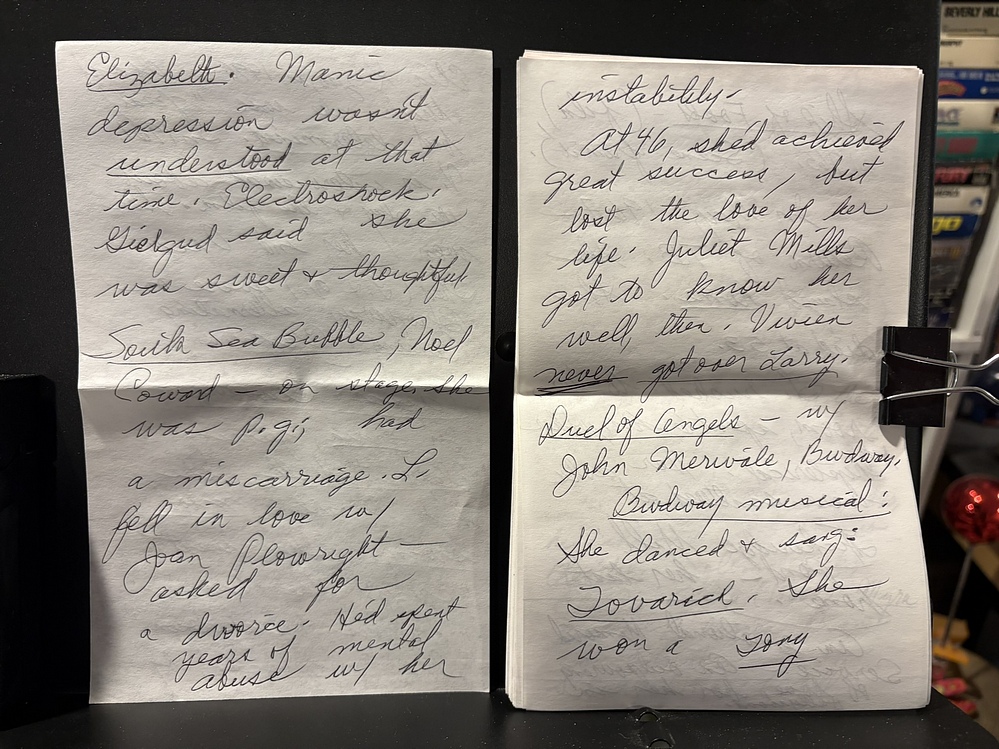 Elizabeth. Manic
depression wasn't
understood at that
time. Electroshock.
Gielgud said she
was sweet & thoughtful
South Sea Bubble, Noel
Coward — on stage. She
was p.g.; had
a miscarriage. L.
fell in love w/
Joan Plowright —
asked for
a divorce. He'd spent
years of mental
abuse w/ her
instability.
At 46, she'd achieved
great success, but
lost the love of her
life. Juliet Mills
got to know her
well, then. Vivien
never got over Larry.
Duel of Angels — w/
John Merivale, Bwdway.
Bwdway musical:
She danced & sang:
Tovarich. She
won a Tony
BEVERLY HILL